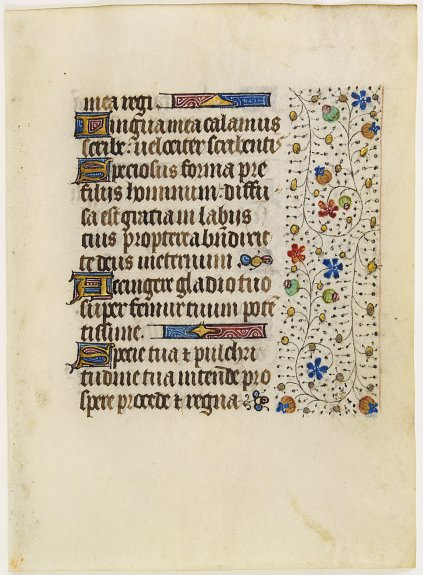 mea regi.
Lingua mea calamus
scribe: velociter scribentis
Speciosus forma pre
filiis hominum: diffu
sa est gratia in labiis
tuis propterea bn̄dixit
te deus in eternum
Accingere gladio tuo
super femur tuum potē
tissime.
Specie tua ⁊ pulchri
tudine tua intēde pro
spere procede ⁊ regna